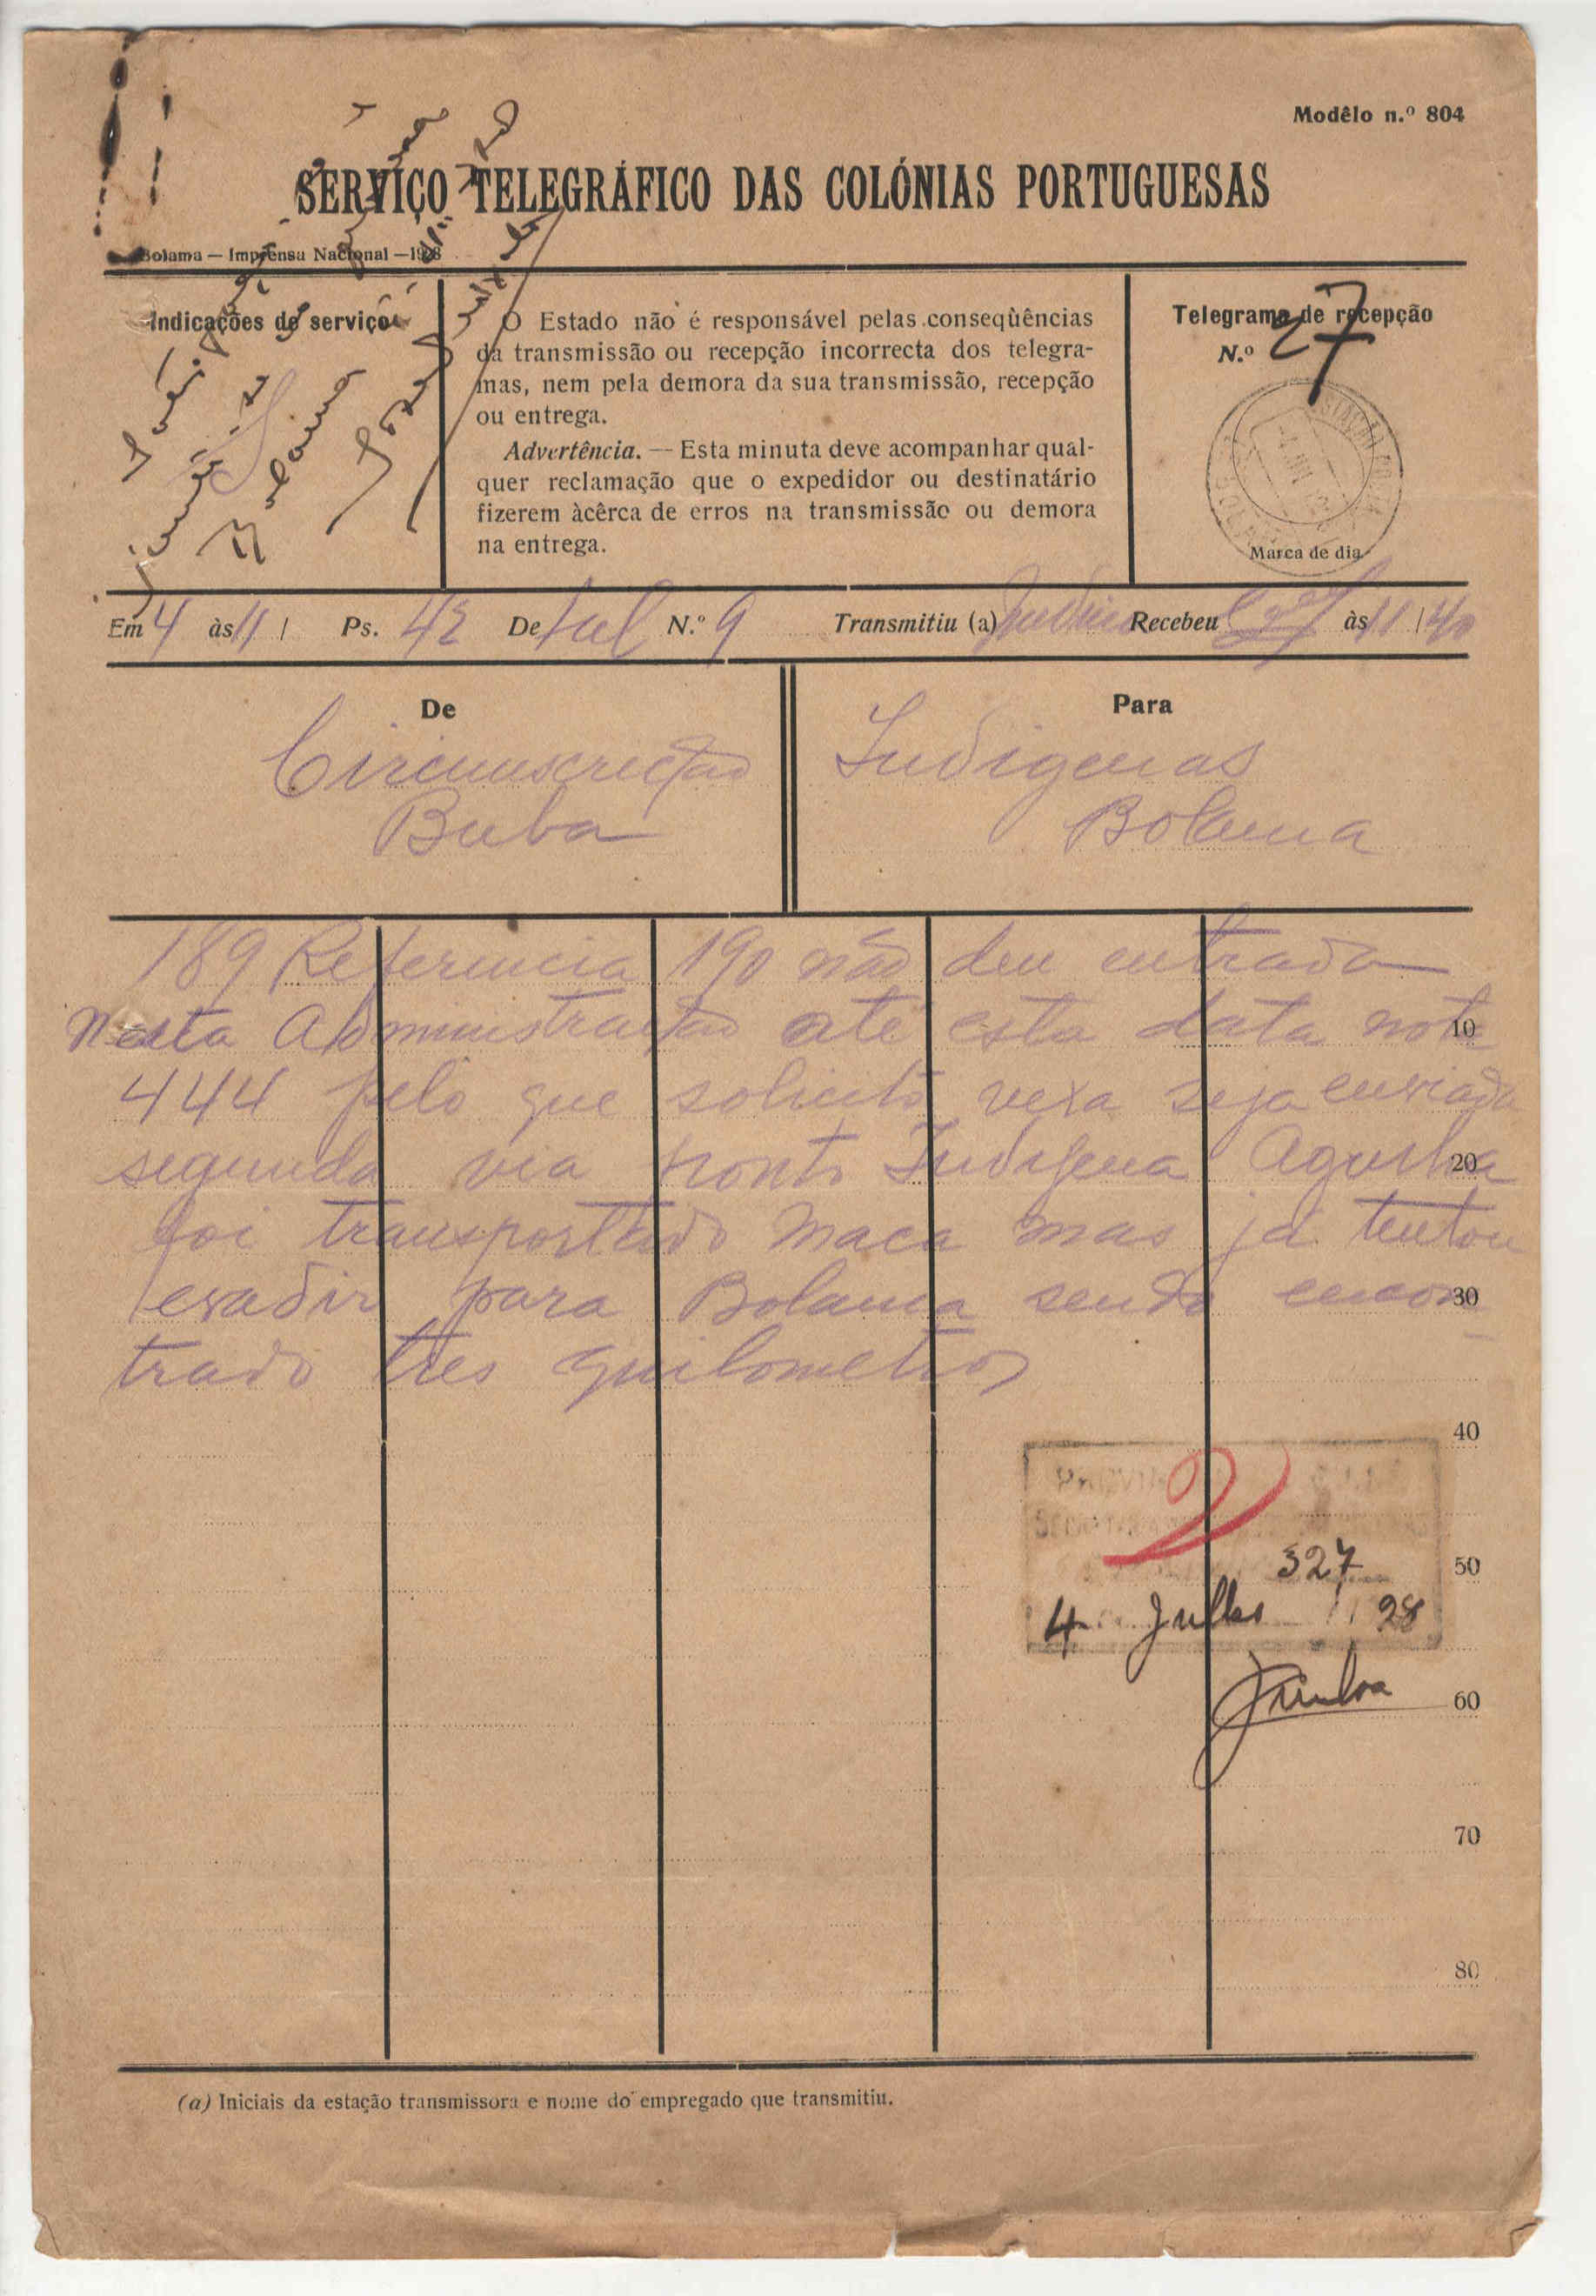 Modêlo n.º 804
SERVIÇO TELEGRÁFICO DAS COLÓNIAS PORTUGUESAS
Bolama — Imprensa Nacional — 1928
Indicações de serviço
O Estado não é responsável pelas conseqùências
da transmissão ou recepção incorrecta dos telegra-
mas, nem pela demora da sua transmissão, recepção
ou entrega.
Advertência. — Esta minuta deve acompanhar qual-
quer reclamação que o expedidor ou destinatário
fizerem àcêrca de erros na transmissão ou demora
na entrega.
Telegrama de recepção
N.º 27
Marca de dia
Em 4 às 11 / Ps. 42 De N.º 9 Transmitiu (a) Recebeu às 11 / 40
De
Circunscrição
Buba
Para
Indigenas
Bolama
189 Referencia 190 não deu entrada
Nesta Administração até esta data nota
444 pelo que solicito vexa seja enviada
segunda via ponto Indigena Agostinha
foi transportado maca mas já tentou
evadir para Bolama sendo encon-
trado tres quilometros
10
20
30
40
50
60
70
80
327
4 Julho 28
(a) Iniciais da estação transmissora e nome do empregado que transmitiu.